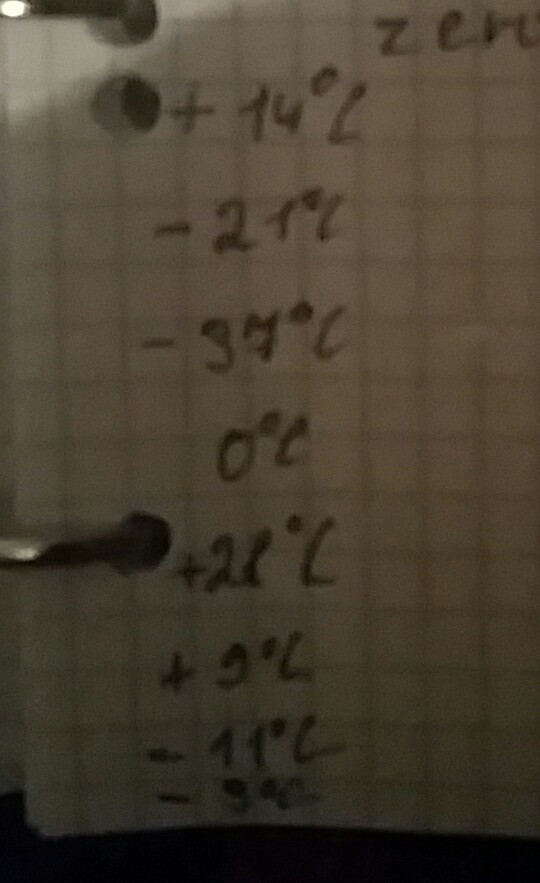 zero
+ 14°C
- 21°C
- 37°C
0°C
+28°C
+ 9°C
- 11°C
- 9°C